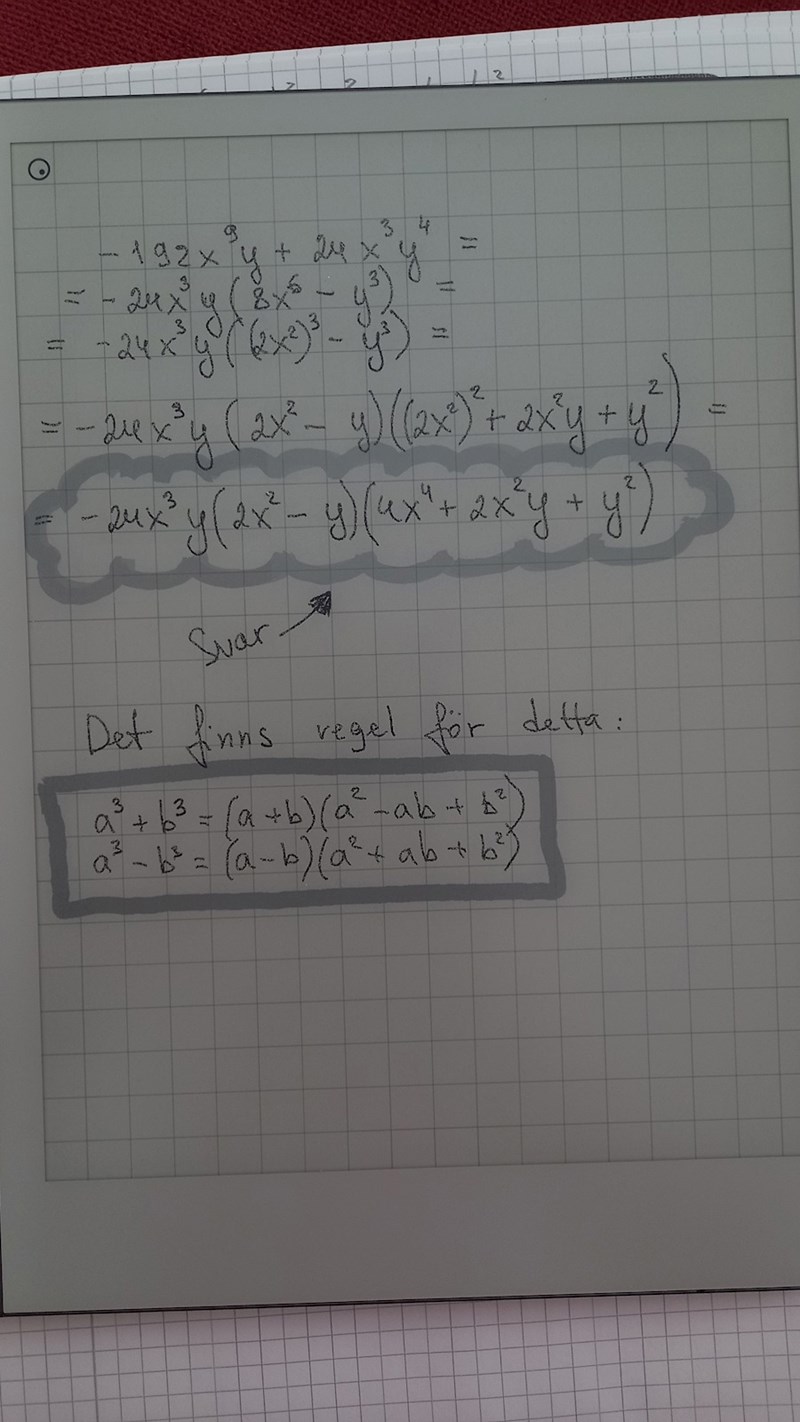 -192x⁹y + 24x³y⁴ =
= -24x³y(8x⁶ - y³) =
= -24x³y((2x²)³ - y³) =
= -24x³y(2x² - y)((2x²)² + 2x²y + y²) =
= -24x³y(2x² - y)(4x⁴ + 2x²y + y²)
Svar
Det finns regel för detta:
a³ + b³ = (a + b)(a² - ab + b²)
a³ - b³ = (a - b)(a² + ab + b²)